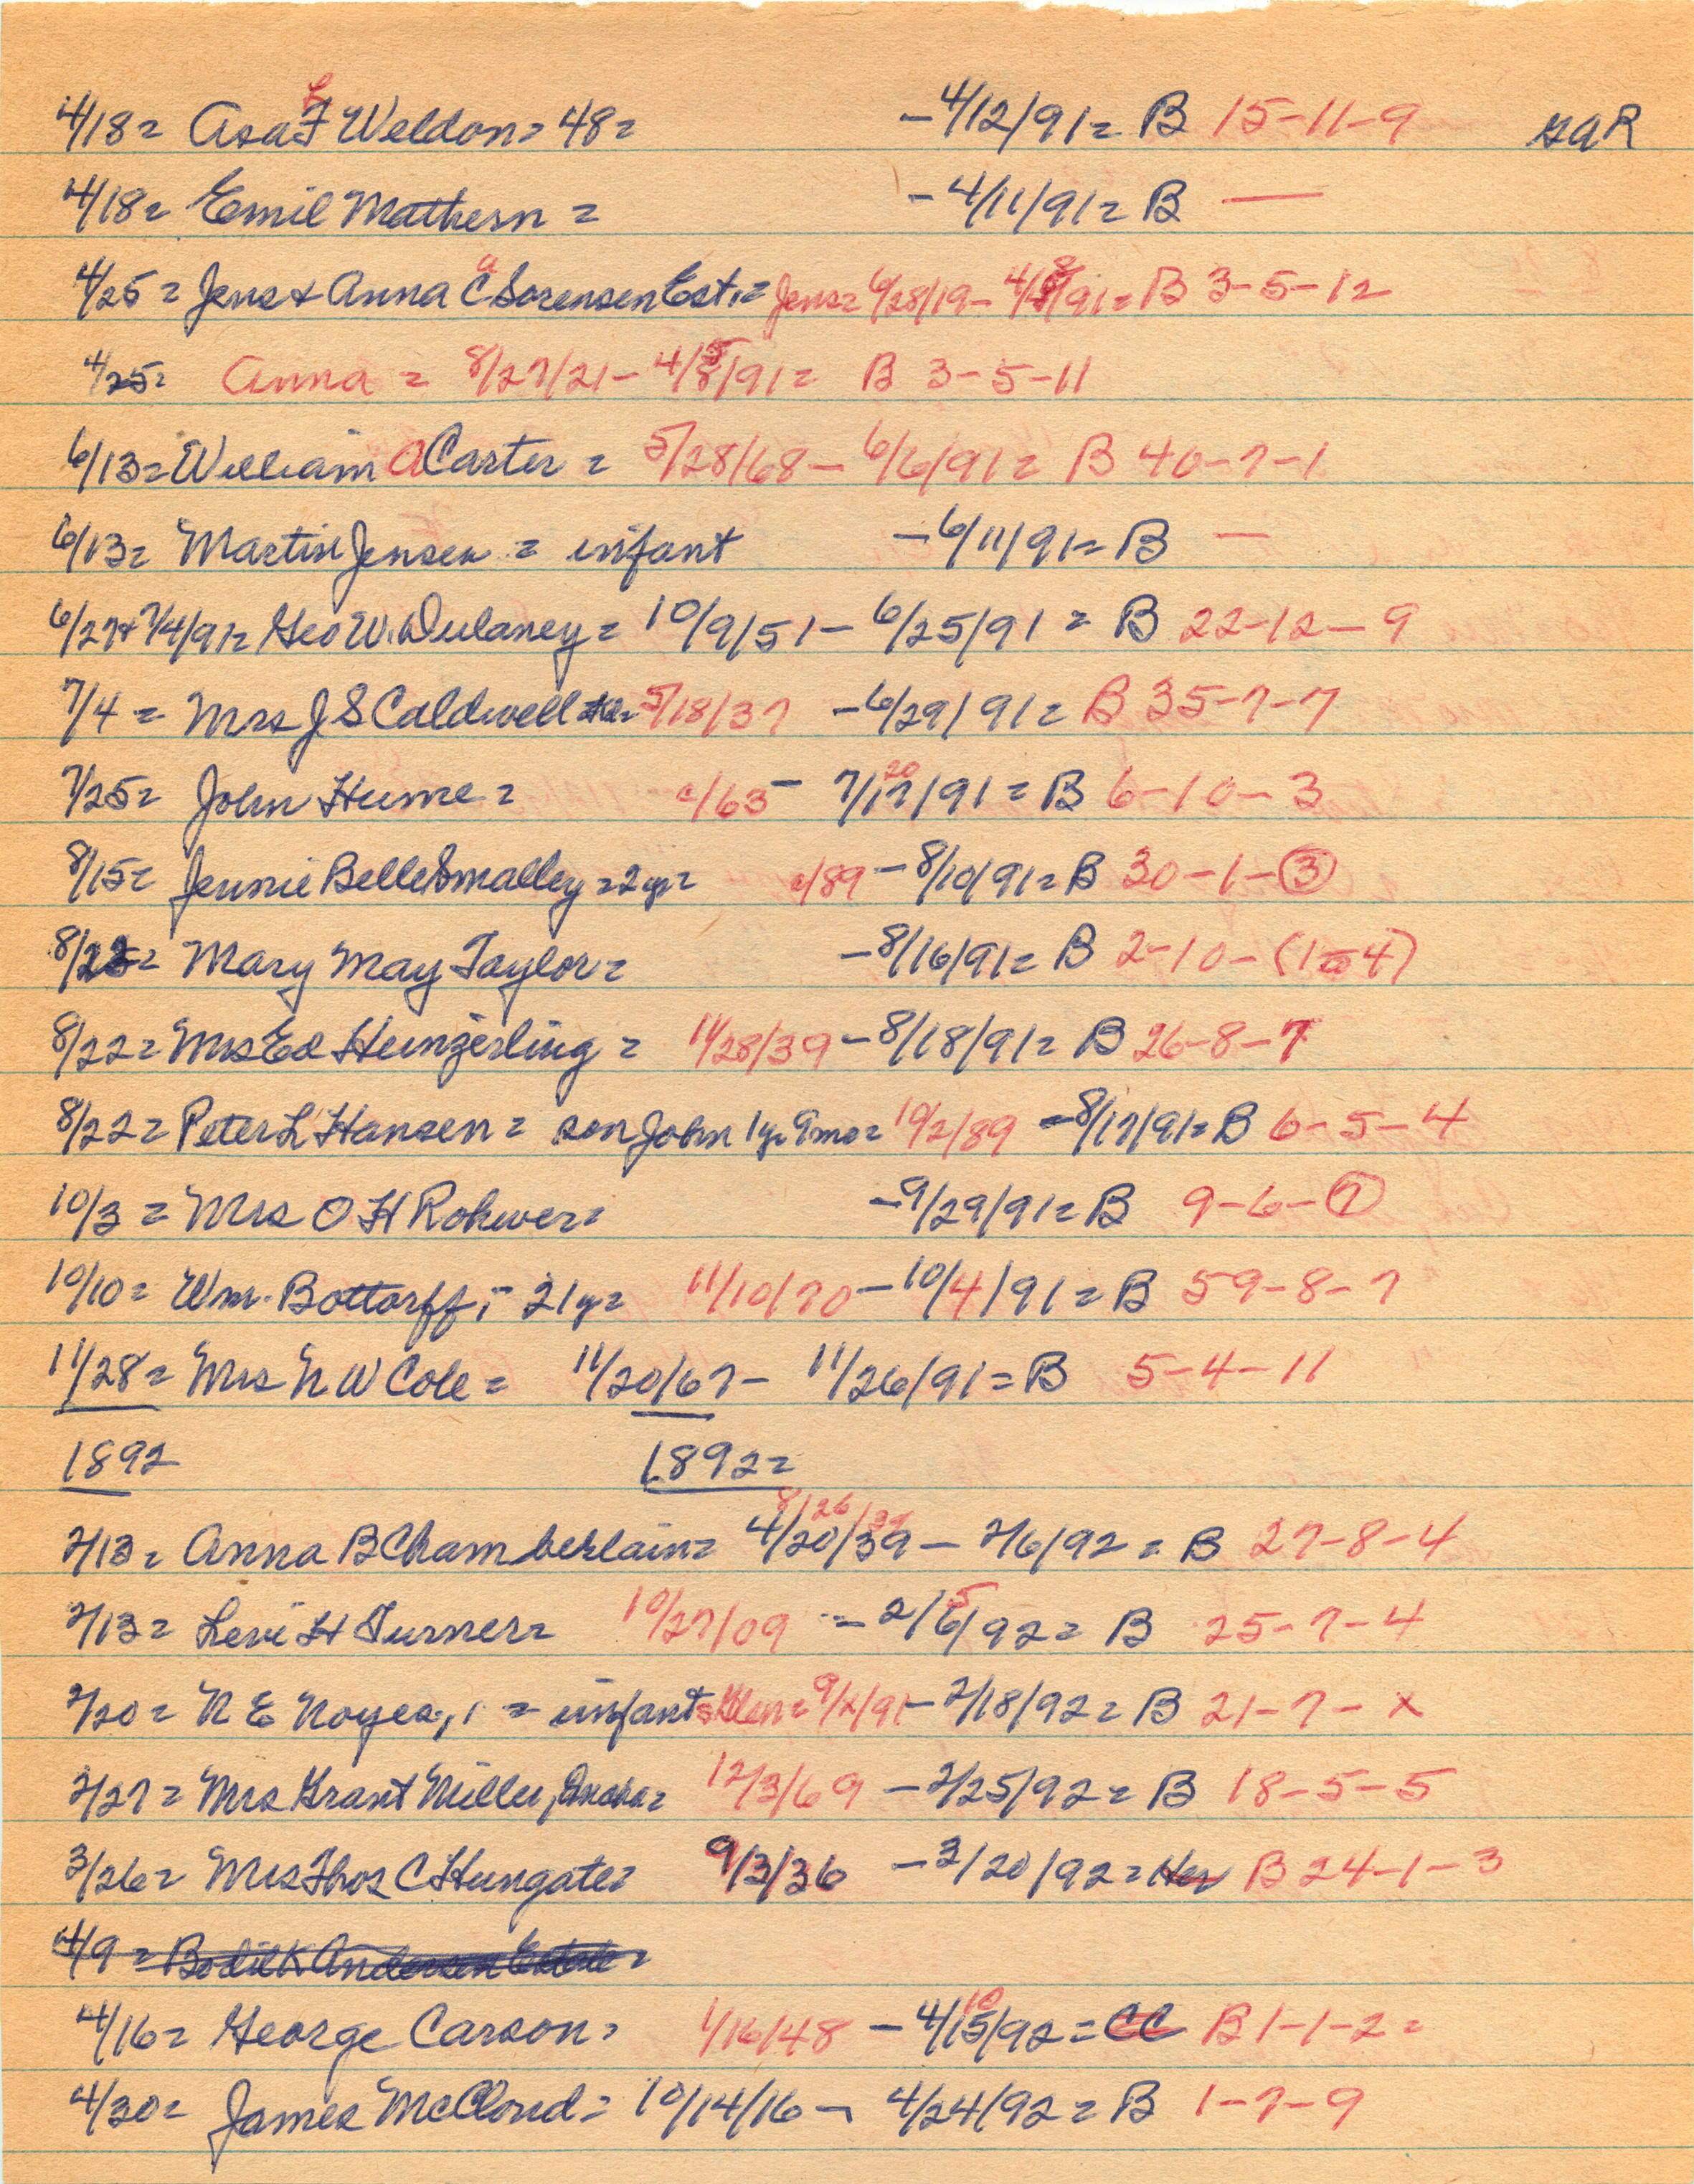 4/18= Asa F L Weldon= 48= -4/12/91= B 15-11-9 GAR
4/18= Emil Mathern = -4/11/91= B —
4/25= Jens & Anna C a Sorensen Est.= Jens= 6/28/19- 4/8/91= B 3-5-12
4/25= Anna = 8/27/21- 4/8/91= B 3-5-11
6/13= William A Carter = 5/28/68- 6/6/91= B 40-7-1
6/13= Martin Jensen = infant -6/11/91= B —
6/27 & 7/4/91= Geo W. Dulaney= 10/9/51- 6/25/91= B 22-12-9
7/4= Mrs J S Caldwell 5/18/37 -6/29/91= B 35-7-7
7/25= John Hume= c/63- 7/17 20/91= B 6-10-3
8/15= Jennie Belle Smalley=2yr= c/89-8/10/91= B 30-1-3
8/22= Mary May Taylor= -8/16/91= B 2-10-(1to4)
8/22= Mrs Ed Hunzerling= 11/28/39-8/18/91= B 26-8-7
8/22= Peter L Hansen= son John 1yr 9mo= 10/2/89 -8/17/91= B 6-5-4
10/3= Mrs O H Rohwer= -9/29/91= B 9-6-7
10/10= Wm. Bottorff,- 21yr= 11/10/70-10/4/91= B 59-8-7
11/28= Mrs N W Cole= 11/20/67- 11/26/91= B 5-4-11
1892 1892=
8/26/39
2/13= Anna B Chamberlain= 4/20/39- 2/6/92= B 27-8-4
2/13= Levi H Turner= 10/27/09 -2/6 5/92= B 25-7-4
2/20= N E Noyes, = infant 9/x/91-2/18/92= B 21-7-x
2/27= Mrs Grant Miller, 12/3/69 -2/25/92= B 18-5-5
3/26= Mrs Thos C Hungate= 9/3/36 -3/20/92= Her B 24-1-3
4/9= Bodil K Andersen Estate=
4/16= George Carson= 1/16/48 -4/15 10/92= CC B 1-1-2=
4/30= James McCloud= 10/14/16- 4/24/92= B 1-7-9